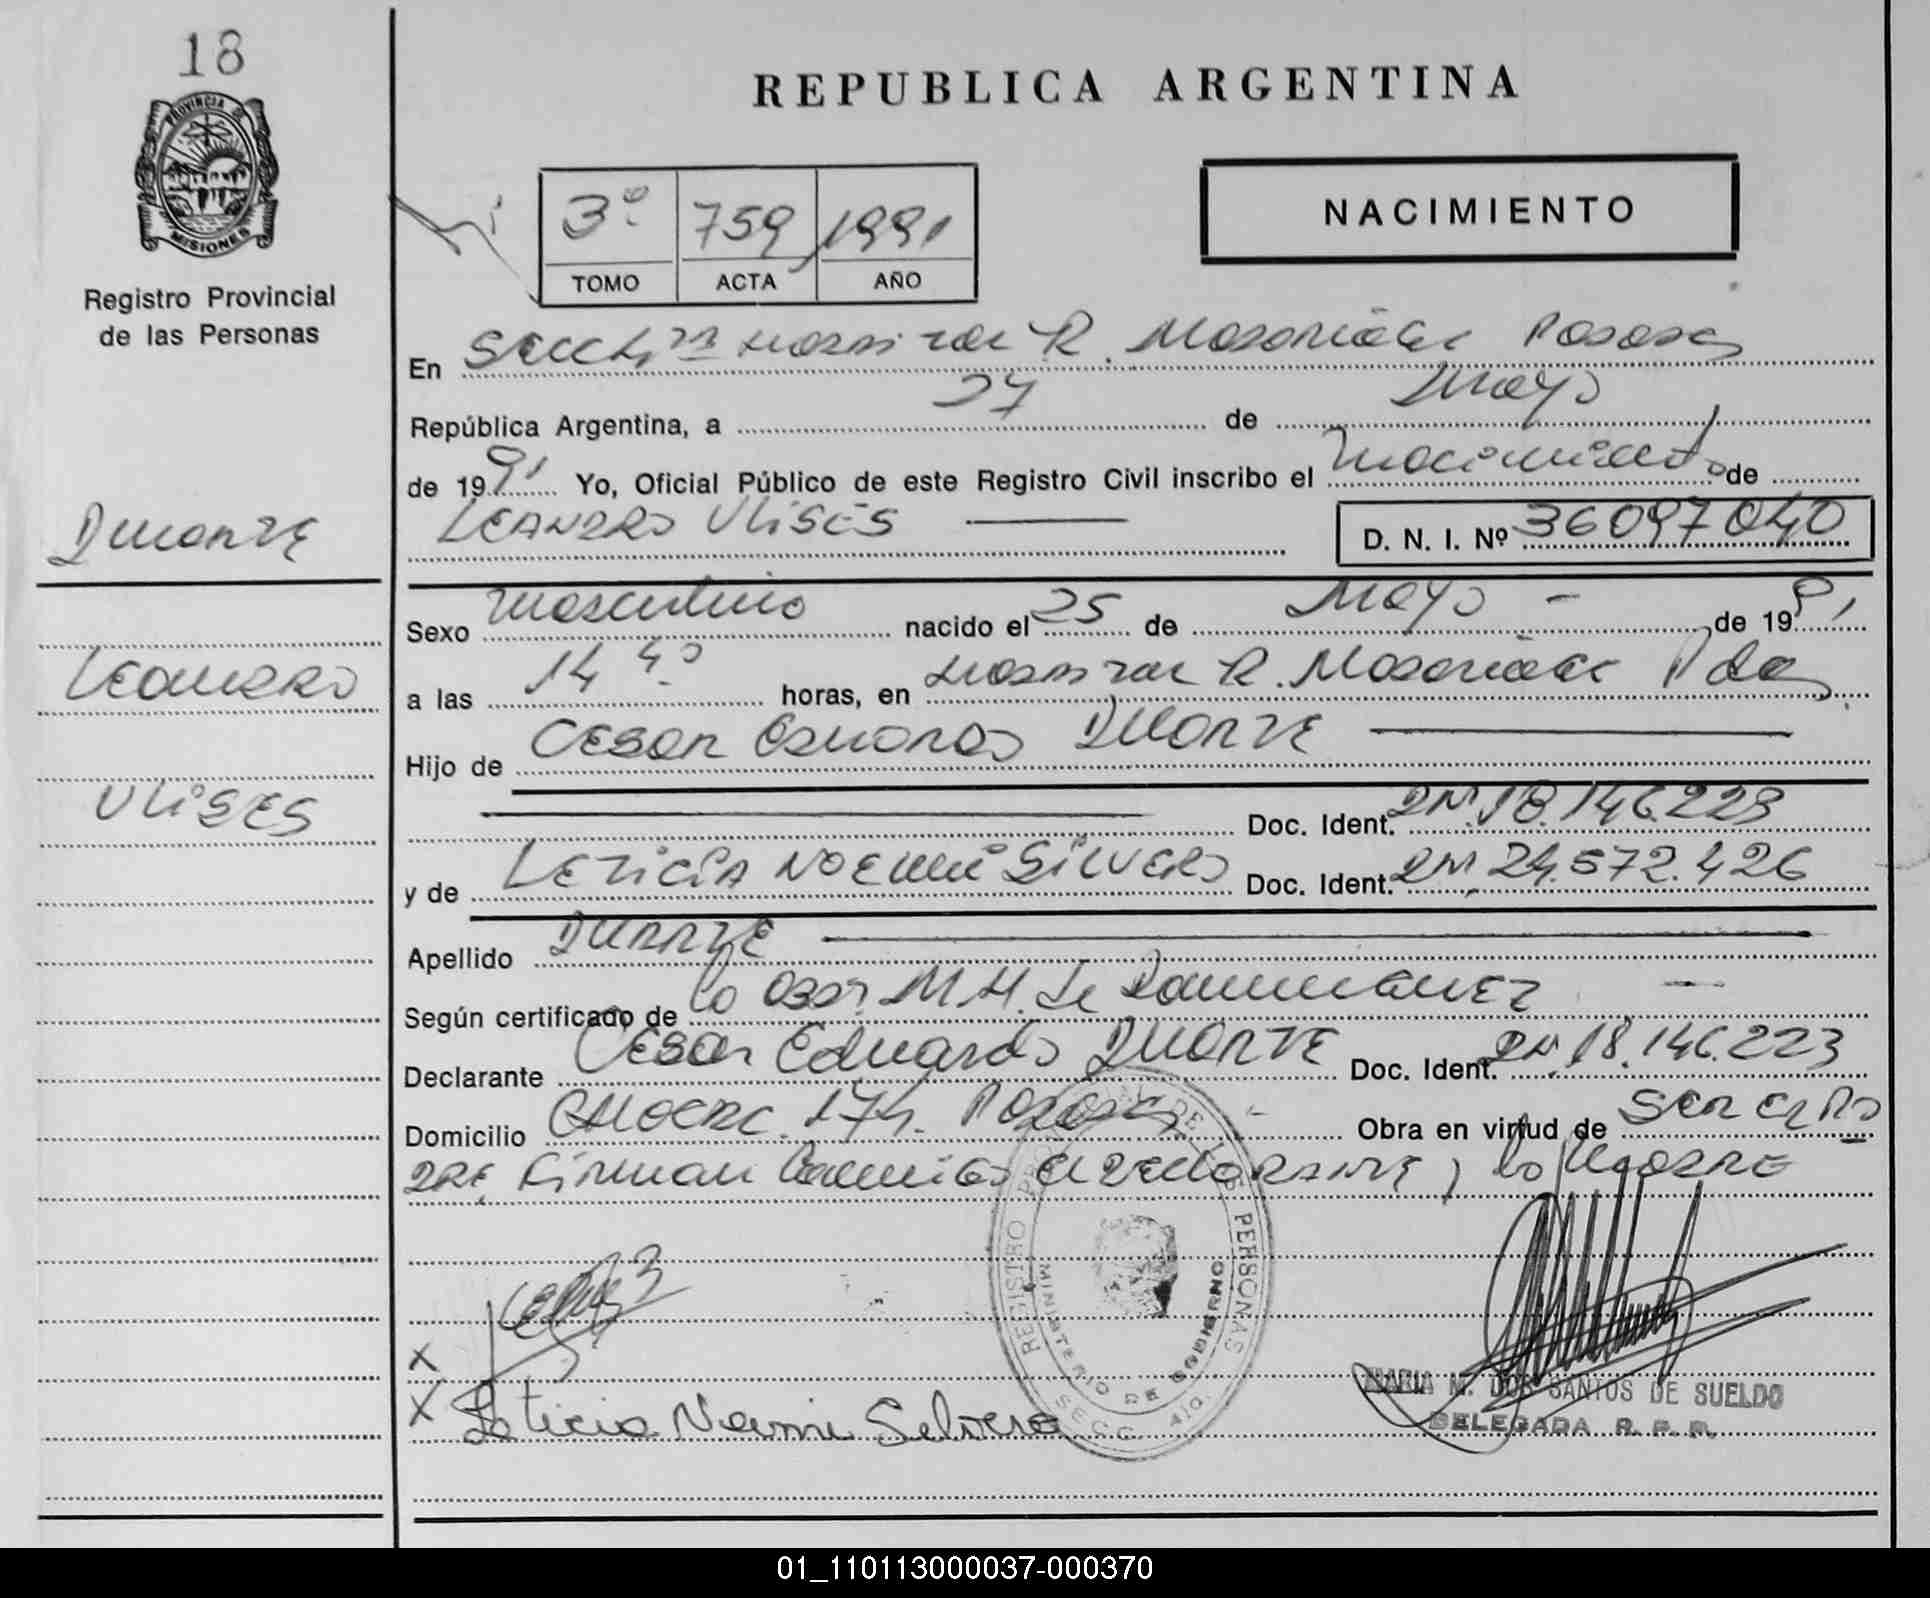 18
PROVINCIA DE
MISIONES
Registro Provincial
de las Personas
Duarte
Leandro
Ulises
REPUBLICA ARGENTINA
NACIMIENTO
3º 759 1991
TOMO ACTA AÑO
En Secc 4ta Hospital R. Madariaga Posadas
República Argentina, a 27 de Mayo
de 1991 Yo, Oficial Público de este Registro Civil inscribo el nacimiento de
LEANDRO ULISES D. N. I. Nº 36097040
Sexo masculino nacido el 25 de Mayo - de 1991
a las 14 40 horas, en Hospital R. Madariaga Pdas
Hijo de Cesar Eduardo Duarte
Doc. Ident. DNI. 18.146.223
y de Leticia Noemi Silvero Doc. Ident. DNI. 24.572.426
Apellido DUARTE
Según certificado de la Obst. M. H. de
Declarante Cesar Eduardo Duarte Doc. Ident. DNI. 18.146.223
Domicilio 174. Posadas - Obra en virtud de ser el Pa
dre, Firman el declarante y la Madre
X
X Leticia Noemi Selvero
REGISTRO PROVINCIAL DE LAS PERSONAS
MINISTERIO DE GOBIERNO
SECC. 4ta.
MARIA M. DOS SANTOS DE SUELDO
DELEGADA R. P. P.
01_110113000037-000370